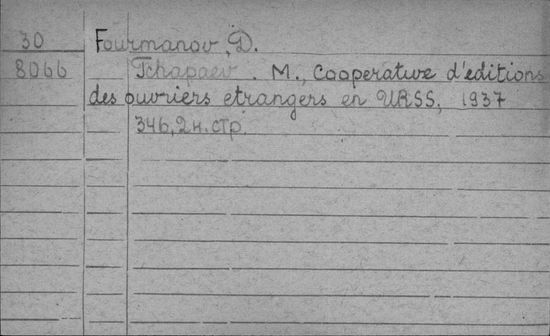 30 Fourmanov, D.
8066 Tchapaev. M., Cooperative d'éditions
des ouvriers etrangers en URSS, 1937
346, 2 н. стр.